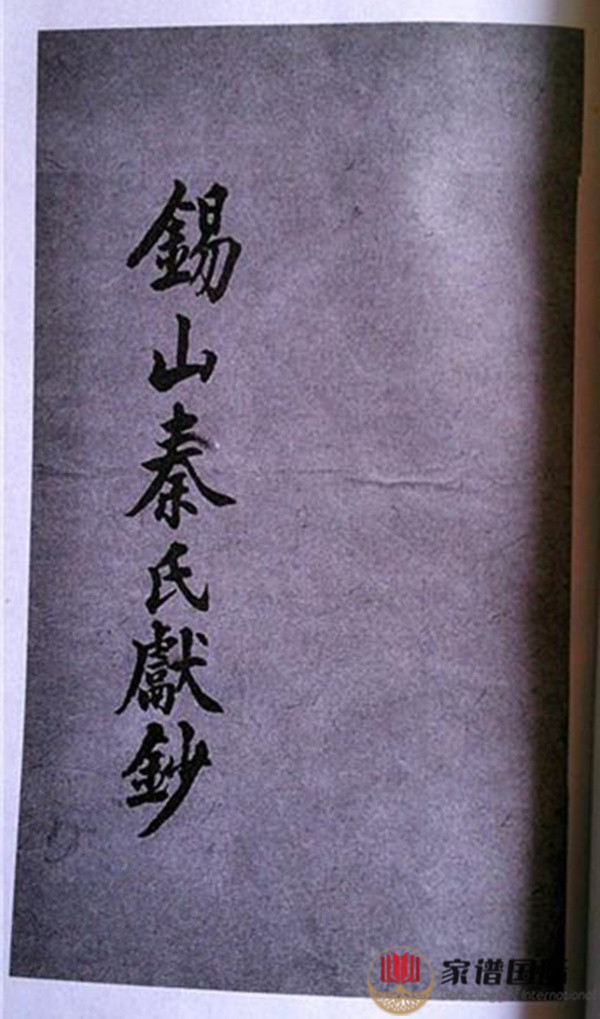 錫山秦氏獻鈔
家谱国
International